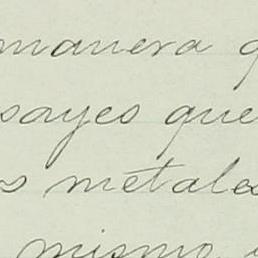 manera q
sayes que
s metales
mismo